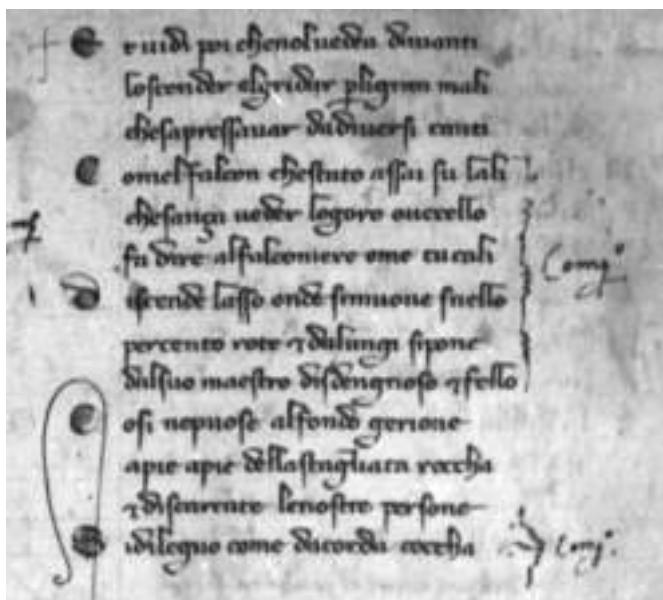 Et uidi poi chenoluedea dauanti
loscender pligran mali
chesapressauar dadiuersi canti
Comelfalcon chestato assai su lali
chesança ueder logoro oucello
fa dire alfalconiere ome tucali
Discende lasso onde simuoue snello
percento rote ⁊ dalungi sipone
dalsuo maestro disdengnoso ⁊ fello
Cosi nepuose alfondo gerione
apie apie dellastagliata roccha
⁊ discarcate lenostre persone
Sidileguo come dacorda coccha